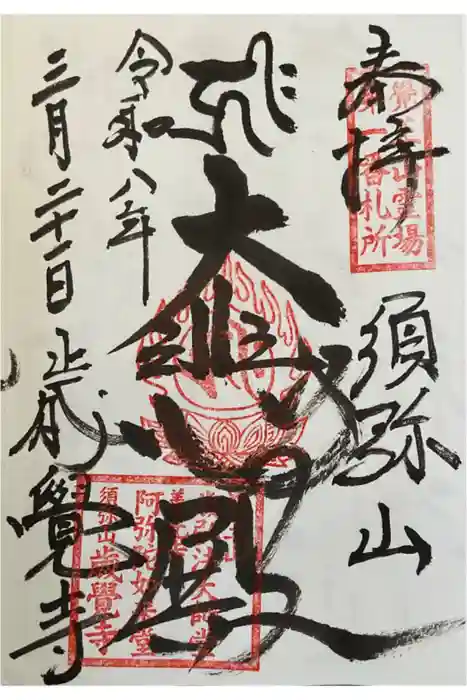 奉拝
山霊場
第一番札所
須弥山
大悲殿
令和八年
三月二十一日
歳覺寺
大師堂
阿弥陀如来堂
須弥山歳覺寺